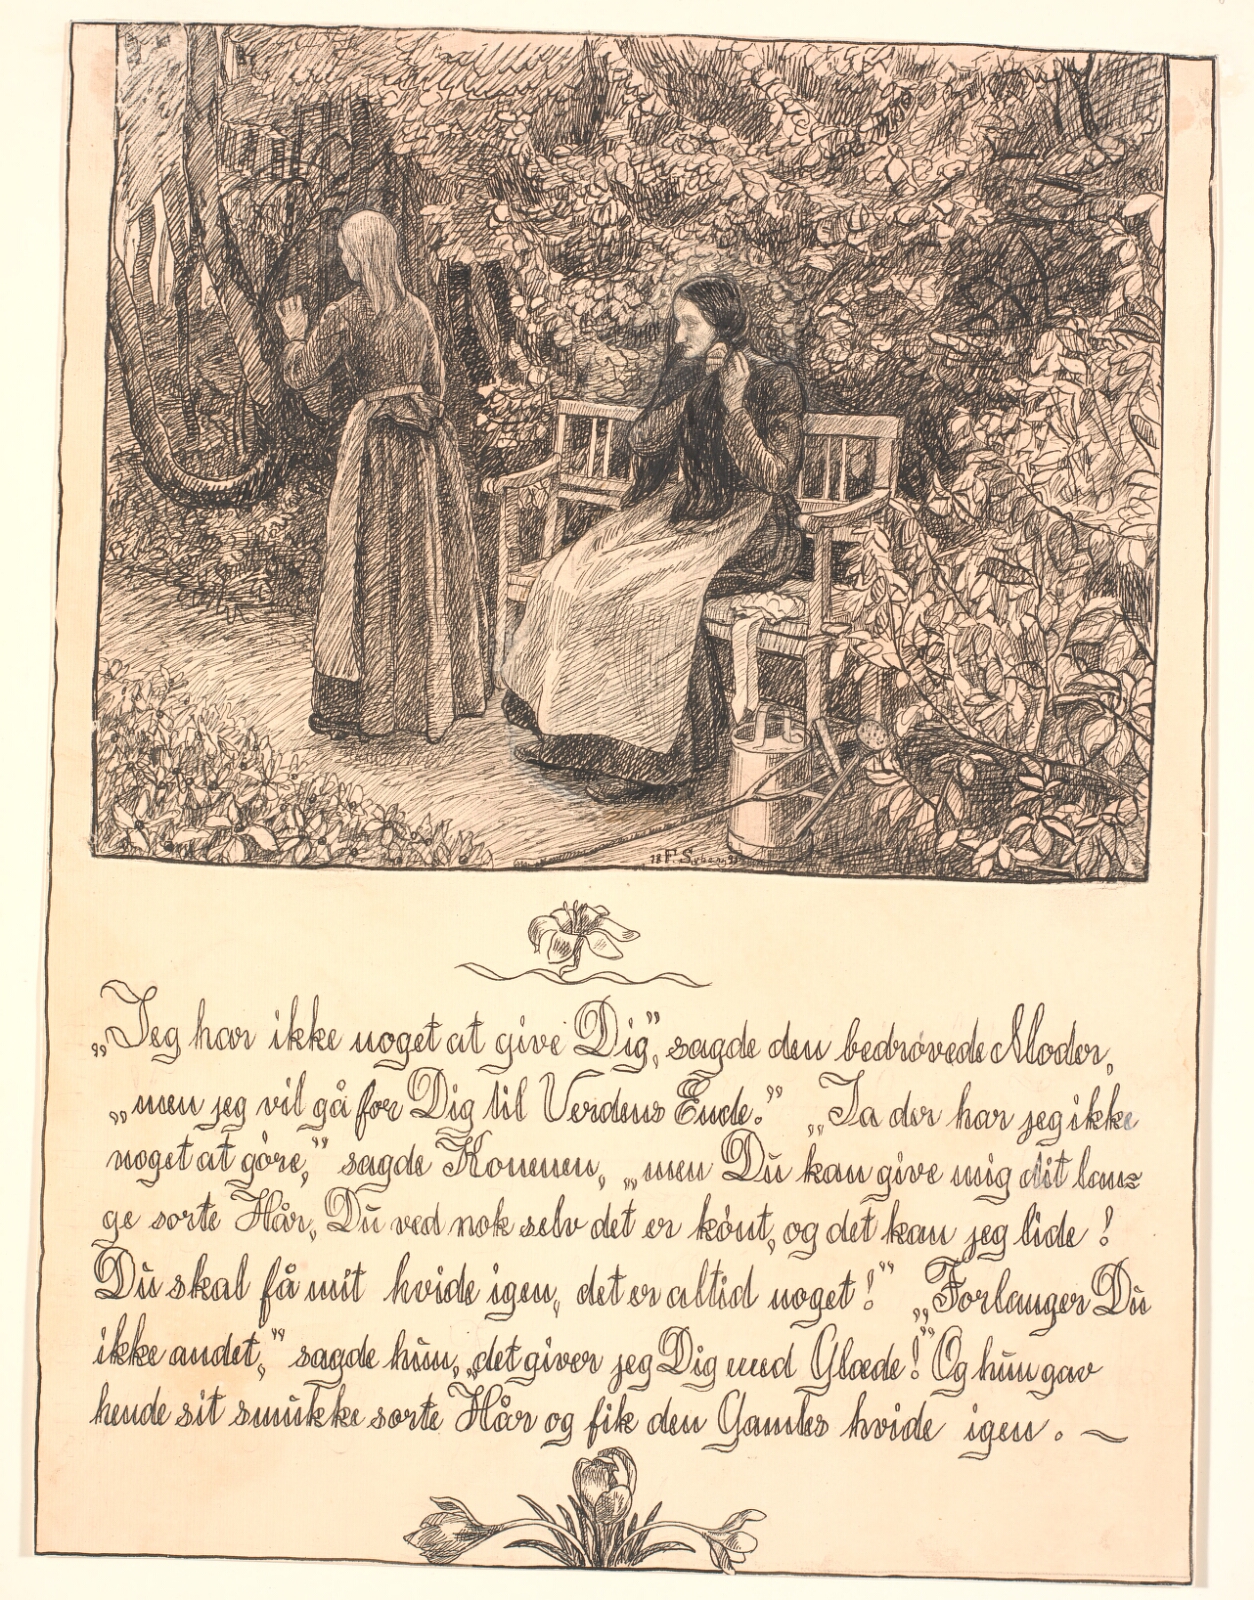 18 F. Syberg 93
„Jeg har ikke noget at give Dig”, sagde den bedrøvede Moder,
„men jeg vil gå for Dig til Verdens Ende.” „Ja der har jeg ikke
noget at göre,” sagde Konenen, „men Dŭ kan give mig dit lan=
ge sorte Hår, Dŭ ved nok selv det er könt, og det kan jeg lide!
Dŭ skal få mit hvide igen, det er altid noget!” „Forlanger Dŭ
ikke andet,” sagde hŭn, „det giver jeg Dig med Glæde!” Og hŭn gav
hende sit smŭkke sorte Hår og fik den Gamles hvide igen. ~